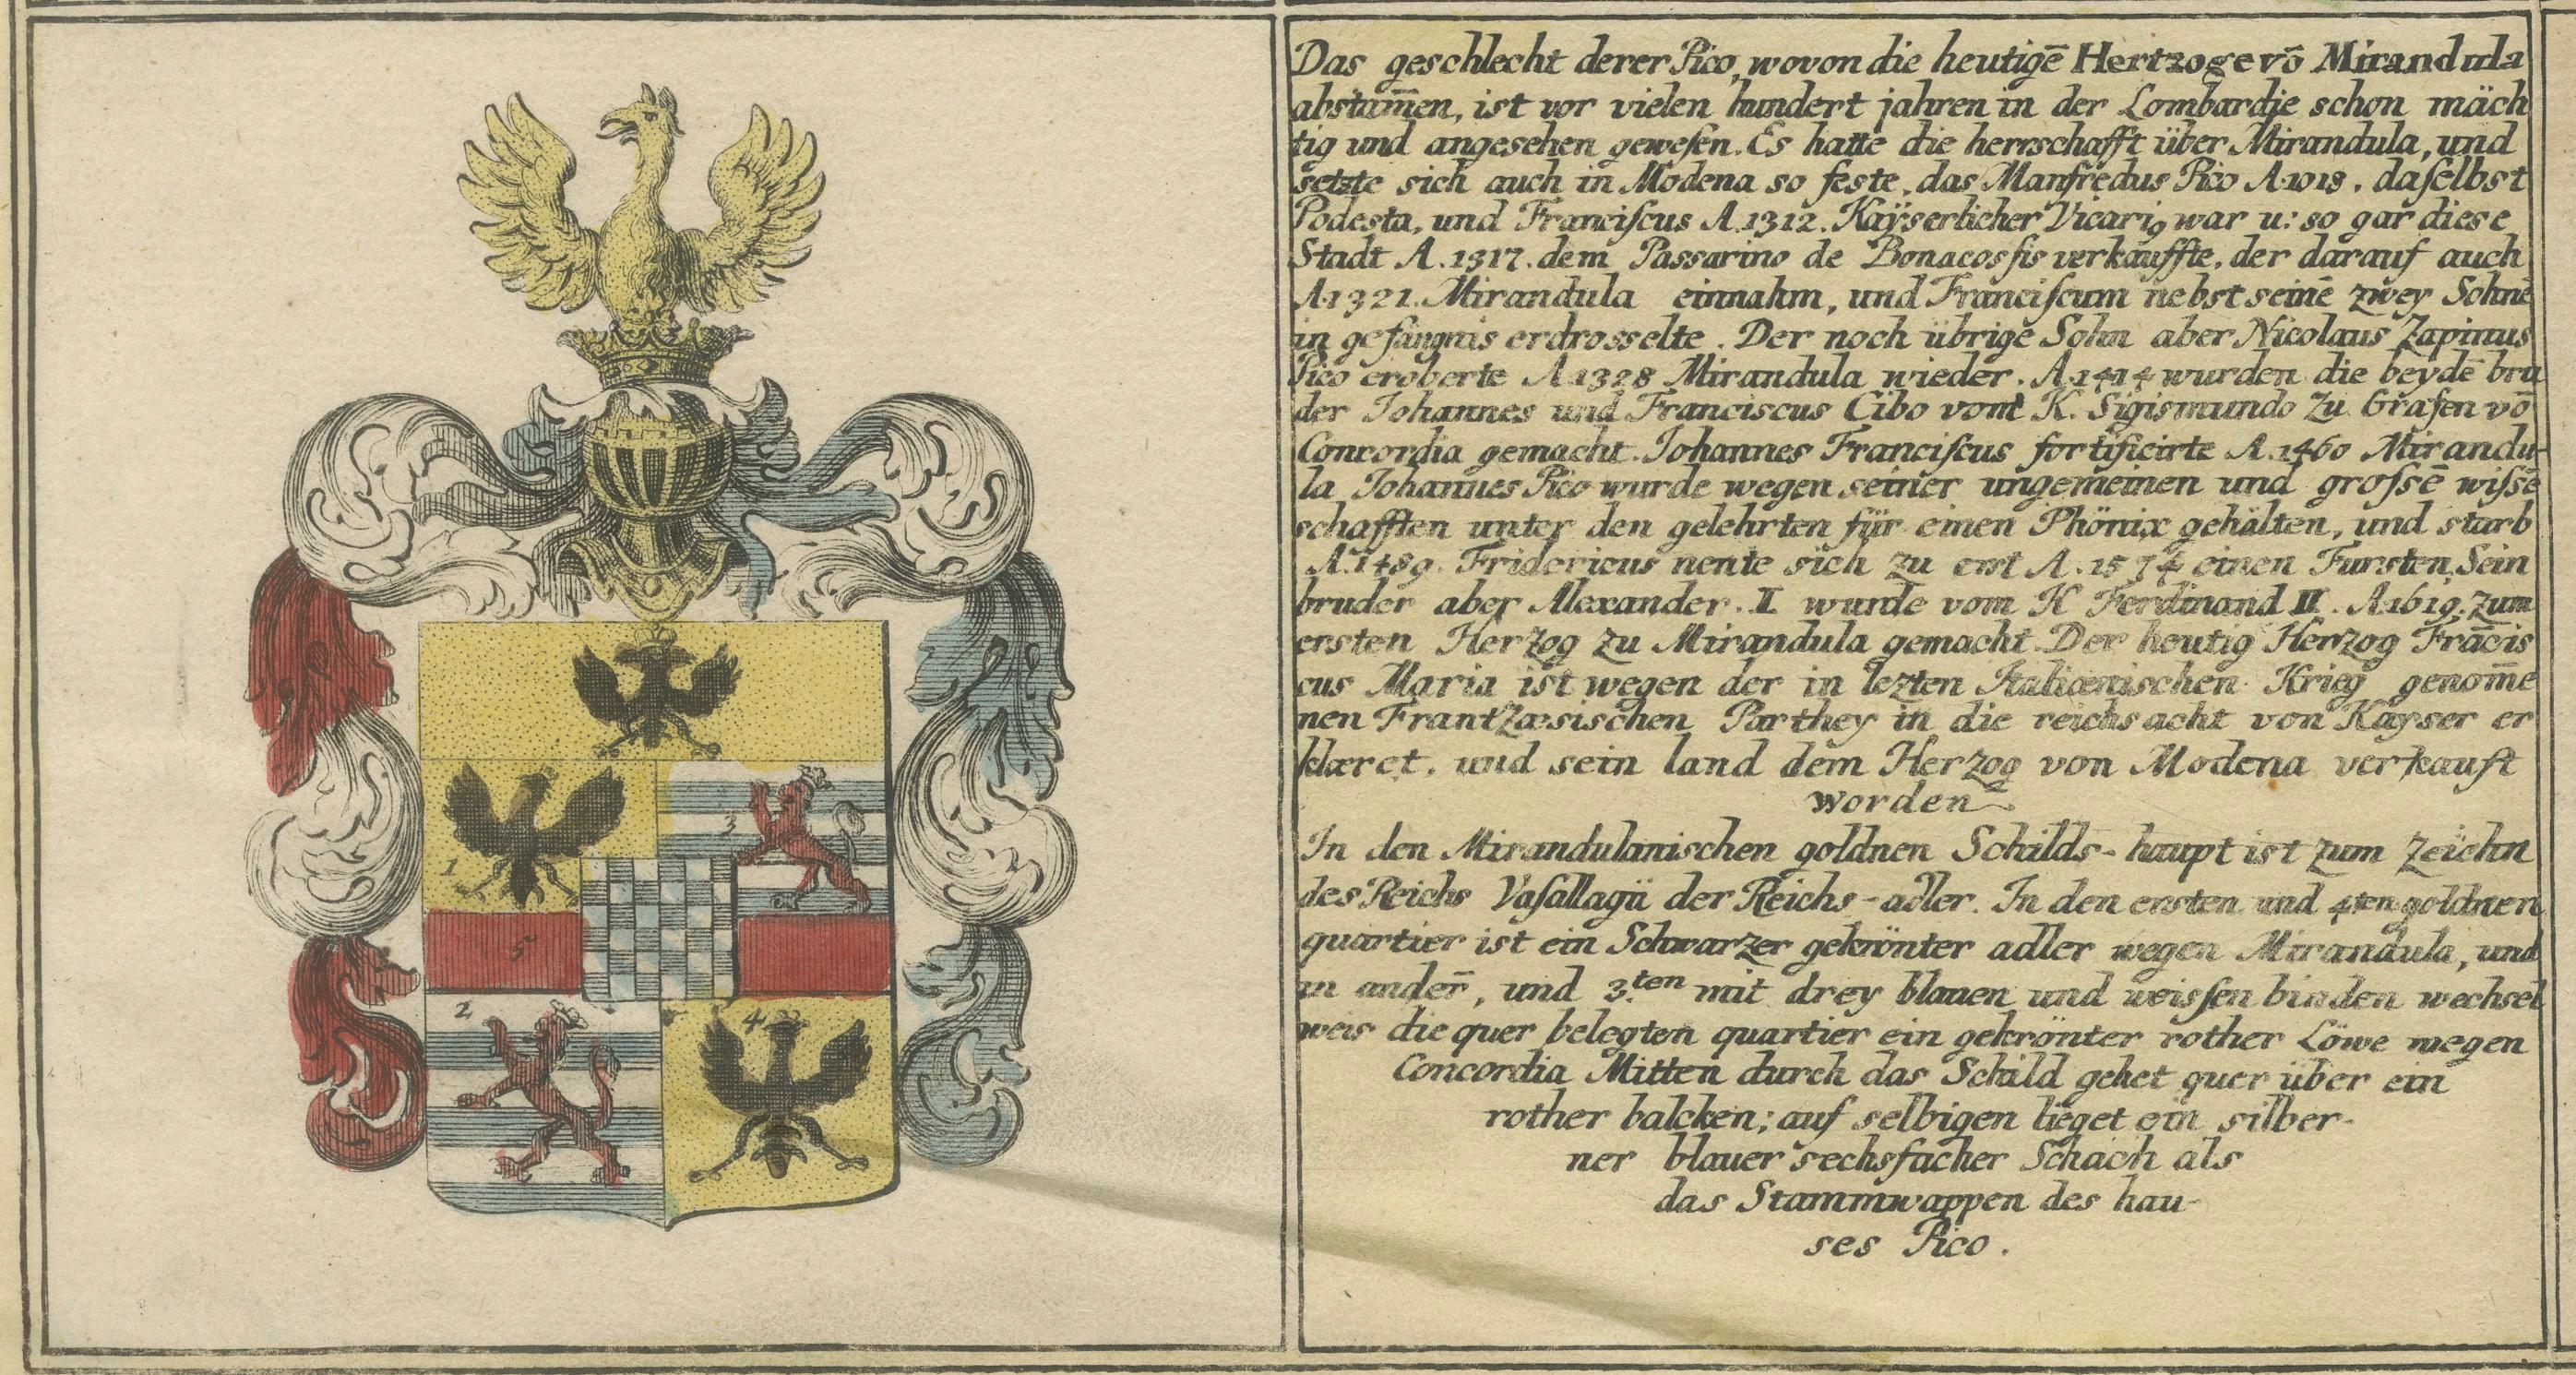 Das geschlecht derer Pico, wovon die heutigē Hertzoge vō Mirandula
abstam̄en, ist vor vielen hundert jahren in der Lombardie schon mäch
tig und angesehen gewesen. Es hatte die herrschafft über Mirandula, und
setzte sich auch in Modena so feste, das Manfredus Pico A. 1018. daselbst
Podesta, und Franciscus A. 1312. Kaÿserlicher Vicarig war u: so gar diese
Stadt A. 1317. dem Passarino de Bonacossis verkauffte, der darauf auch
A. 1321. Mirandula einnahm, und Franciscum nebst seinē zwey Sohnē
in gefängnis erdrosselte. Der noch übrige Sohn aber Nicolaus Zapinus
Pico eroberte A 1328 Mirandula wieder. A. 1414 wurden die beydē brü
der Johannes und Franciscus Cibo vom K. Sigismundo zu Grafen vō
Concordia gemacht. Johannes Franciscus fortificirte A. 1460 Mirandu-
la Johannes Pico wurde wegen seiner ungemeinen und grossē wissē
schafften unter den gelehrten für einen Phönix gehalten, und starb
A. 1489. Fridericus nente sich zu erst A. 1574 einen Fursten. Sein
bruder aber Alexander. I wurde vom K Ferdinand II. A. 1619. zum
ersten Herzog zu Mirandula gemacht. Der heutig Herzog Frācis
cus Maria ist wegen der in lezten Italiænischen Krieg genom̄e
nen Frantzæsischen Parthey in die reichs acht von Kayser er
klæret, und sein land dem Herzog von Modena verkauft
worden
In den Mirandulanischen goldnen Schilds-haupt ist zum Zeichn
des Reichs Vasallagii der Reichs-adler. In den ersten und 4ten goldnen
quartier ist ein Schwarzer gekrönter adler wegen Mirandula, und
in ander̄, und 3.ten mit drey blauen und weissen binden wechsel
weis die quer belegten quartier ein gekrönter rother Löwe wegen
Concordia Mitten durch das Schild gehet quer über ein
rother balcken; auf selbigen lieget ein silber-
ner blauer sechsfacher Schach als
das Stammwappen des hau-
ses Pico.
1
3
5
2
4